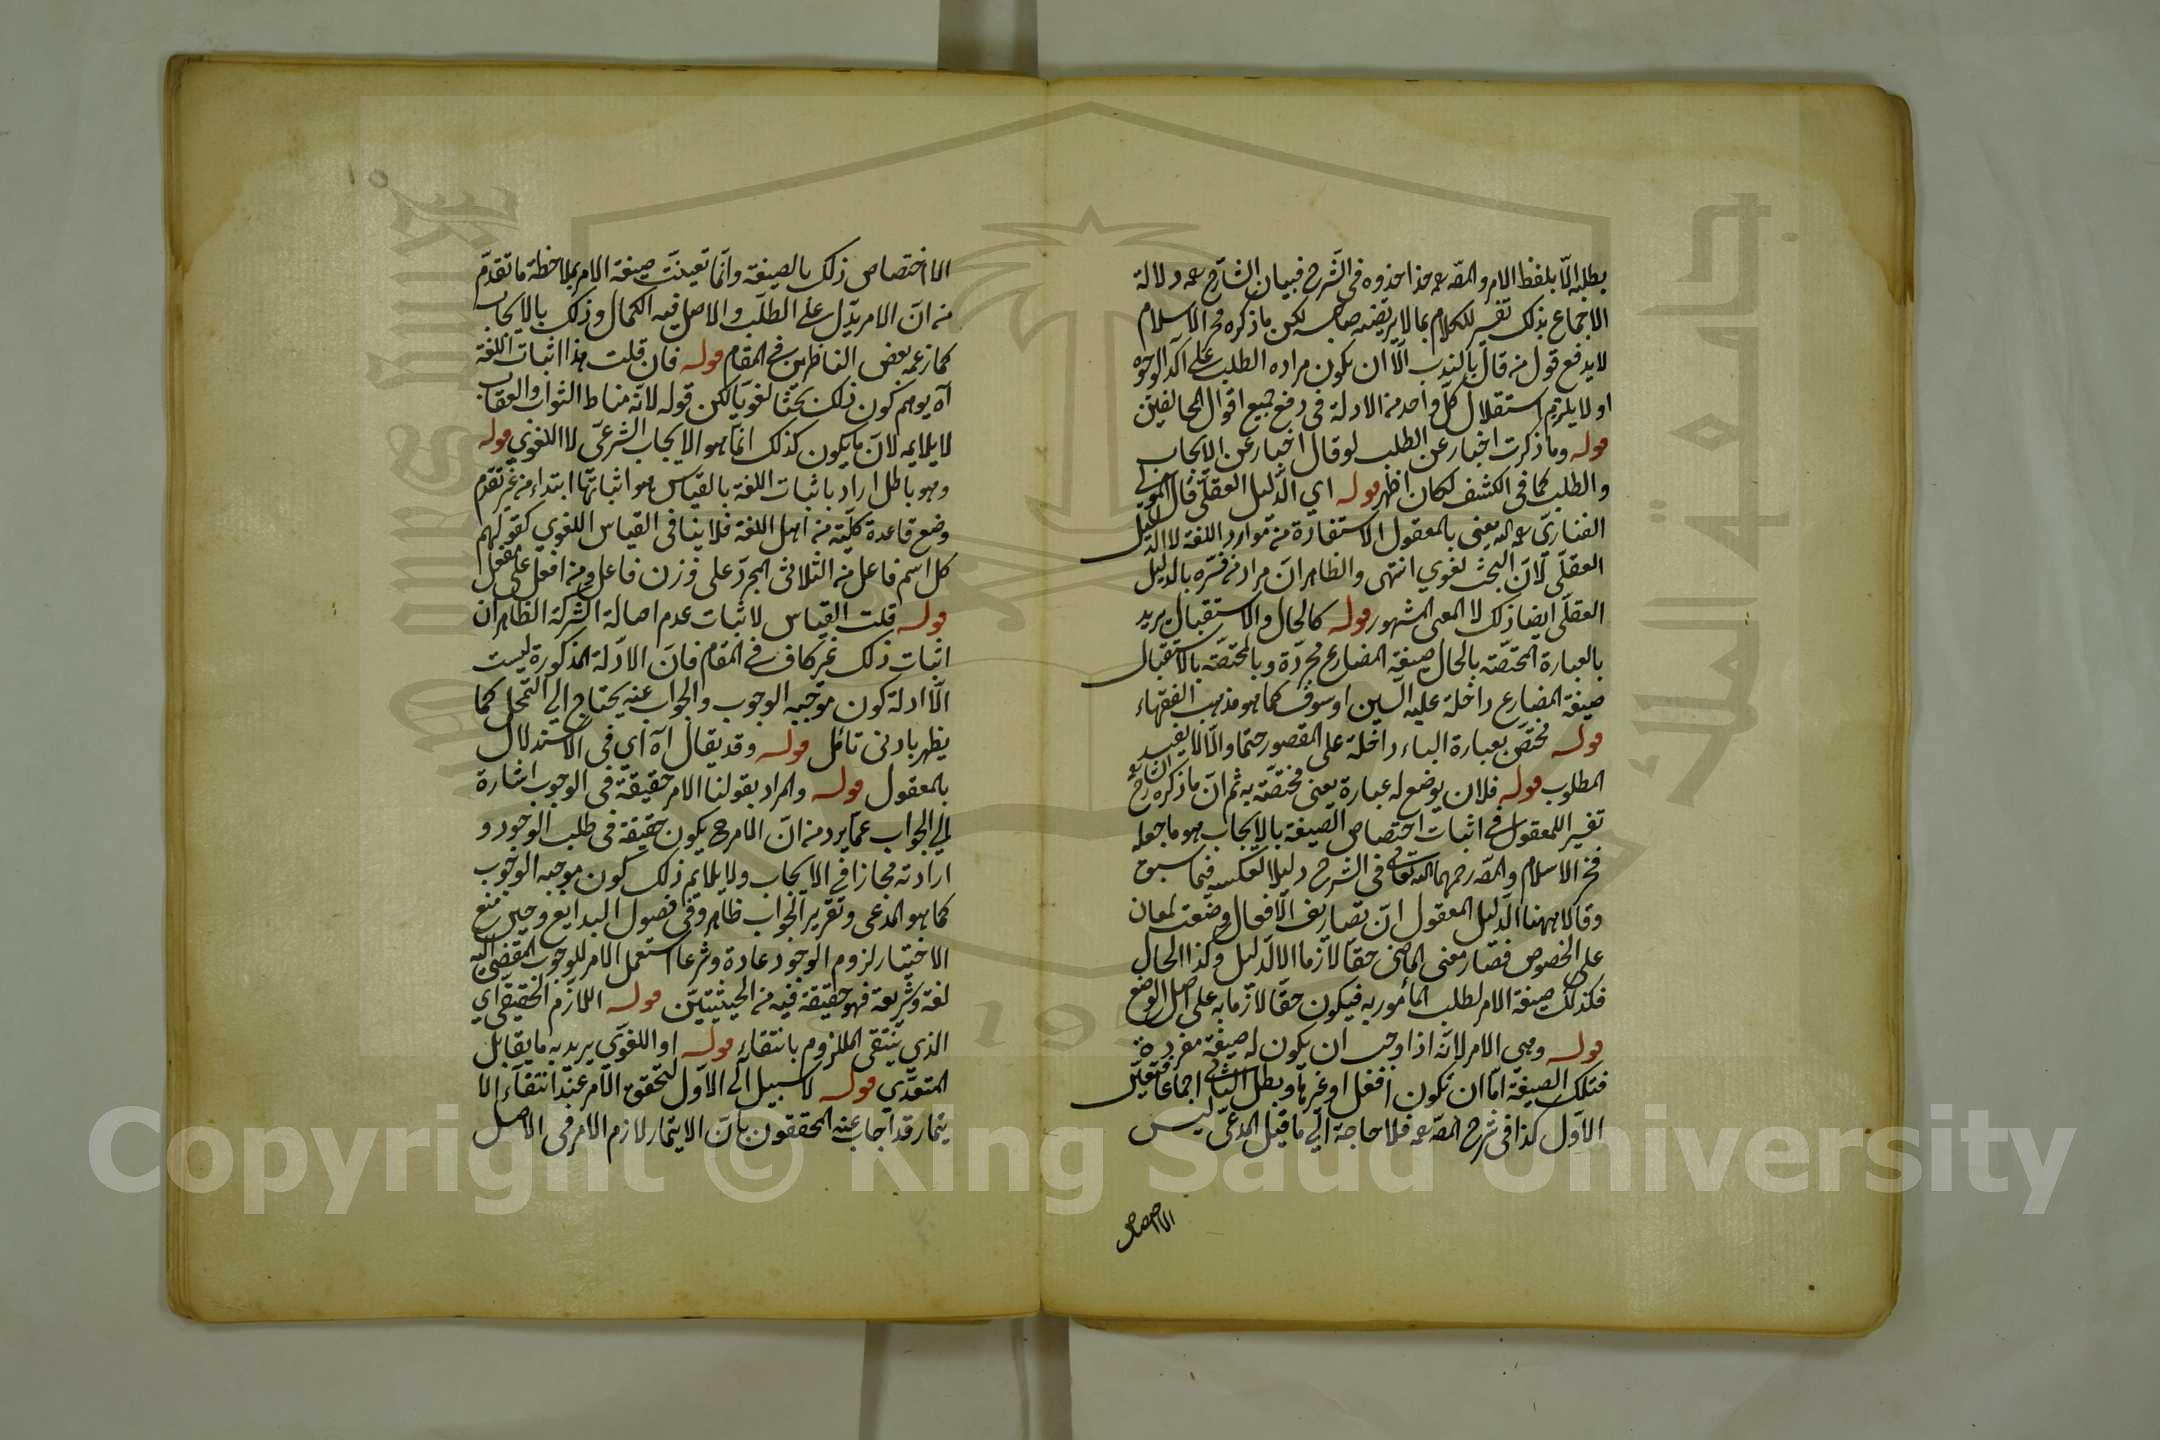 بطلبه الّا بلفظ الامر والمصّ عه حذا حذوه فى الشّرح فبيان الشارح عه دلالة
الاجماع بذلك تفسير للكلام بما لا يرتضيه صاحبه لكن ما ذكره فخر الاسلام
لا يدفع قول من قال بالندب الّا ان يكون مراده الطلب على آكد الوجوه
او لا يلزم استقلال كلّ واحد من الادلة فى دفع جميع اقوال المخالفين
قوله وما ذكرت اخبار عن الطلب لو قال اخبار عن الايجاب
والطلب كما فى الكشف لكان اظهر قوله اى الدّليل العقلّى قال المولى
الفنارىّ عه الله يعنى بالمعقول الاستفادة من موارد اللغة لا الدليل
العقلّى لانّ البحث لغوي انتهى والظاهر انّ مراد من فسّره بالدليل
العقلّى ايضا ذلك لا المعنى المشهور قوله كالحال والاستقبال يريد
بالعبارة المختصّة بالحال صيغة المضارع مجرّدة وبالمختصّة بالاستقبال
صيغة المضارع داخلة عليه السين او سوف كما هو مذهب الفقهاء
قوله مختصّ بعبارة الباء داخلة على المقصور حتما والّا لا يفيد
المطلوب قوله فلان يوضع له عبارة يعنى مختصّة به ثم انّ ما ذكره الشارح عه
تفسير اللمعقول فى اثبات اختصاص الصيغة بالايجاب هو ما جعله
فخر الاسلام والمصّ رحمهما الله تعالى فى الشرح دليلا لعكسه فيما سبق
وقالا ههنا الدّليل المعقول انّ تصاريف الافعال وضعت لمعان
على الخصوص فصار معنى الماضى حقّا لازما الا لدليل وكذا الحال
فكذلك صيغة الامر لطلب المأمور به فيكون حقّا لازما به على اصل الوضع
قوله وهى الامر لانّه اذا وجب ان يكون له صيغة مفردة
فتلك الصيغة امّا ان تكون افعل او غيرها وبطل الثانى اجماعا فتعيّن
الاوّل كذا فى شرح المصّ عه فلا حاجة الى ما قيل المدعى ليس
الا اختصاص
الا اختصاص ذلك بالصيغة وانّما تعينت صيغة الامر بملاحظة ما تقدّم
من انّ الامر يدّل على الطلب والاصل فيه الكمال وذلك بالايجاب
كما زعمه بعض الناظرين فى المقام قوله فان قلت هذا اثبات اللغة
آه يوهم كون ذلك بحثا لغويا لكن قوله لانّه مناط الثواب والعقاب
لا يلايمه لانّ ما يكون كذلك انّما هو الايجاب الشرعىّ لا اللغوي قوله
وهو باطل اراد باثبات اللغة بالقياس هو اثباتها ابتداء من غير تقدّم
وضع قاعدة كلّية من اهل اللغة فلا ينافى القياس اللغوي كقولهم
كل اسم فاعل من الثلاثى المجرّد على وزن فاعل ومن افعل على مفعل
قوله قلت القياس لاثبات عدم اصالة الشركة الظاهر ان
اثبات ذلك غير كاف فى المقام فانّ الادّلة المذكورة ليست
الّا ادلة كون موجبه الوجوب والجواب عنه يحتاج الى التّمحل كما
يظهر بادنى تامّل قوله وقد يقال آه اي فى الاستدلال
بالمعقول قوله والمراد بقولنا الامر حقيقة فى الوجوب اشارة
الى الجواب عمّا يرد من انّ الامر ح يكون حقيقة فى طلب الوجود و
ارادته مجازا فى الايجاب ولا يلايم ذلك كون موجبه الوجوب
كما هو المدعى وتقرير الجواب ظاهر وفى فصول البدايع وحين منع
الاختيار لزوم الوجود عادة وشرعا استعمل الامر للوجوب المقضى اليه
لغة وشريعة فهو حقيقة فيه من الحيثيتين قوله اللازم الحقيقى اي
الذي ينتفى الملزوم بانتفاء قوله او اللغوّي يريد به ما يقابل
المتعدّي قوله لا سبيل الى الاوّل لتحقق الامر عند انتفاء الا
يتمار قد اجاب عنه المحققون بانّ الايتمار لازم الامر فى الاصل
Copyright © King Saud University